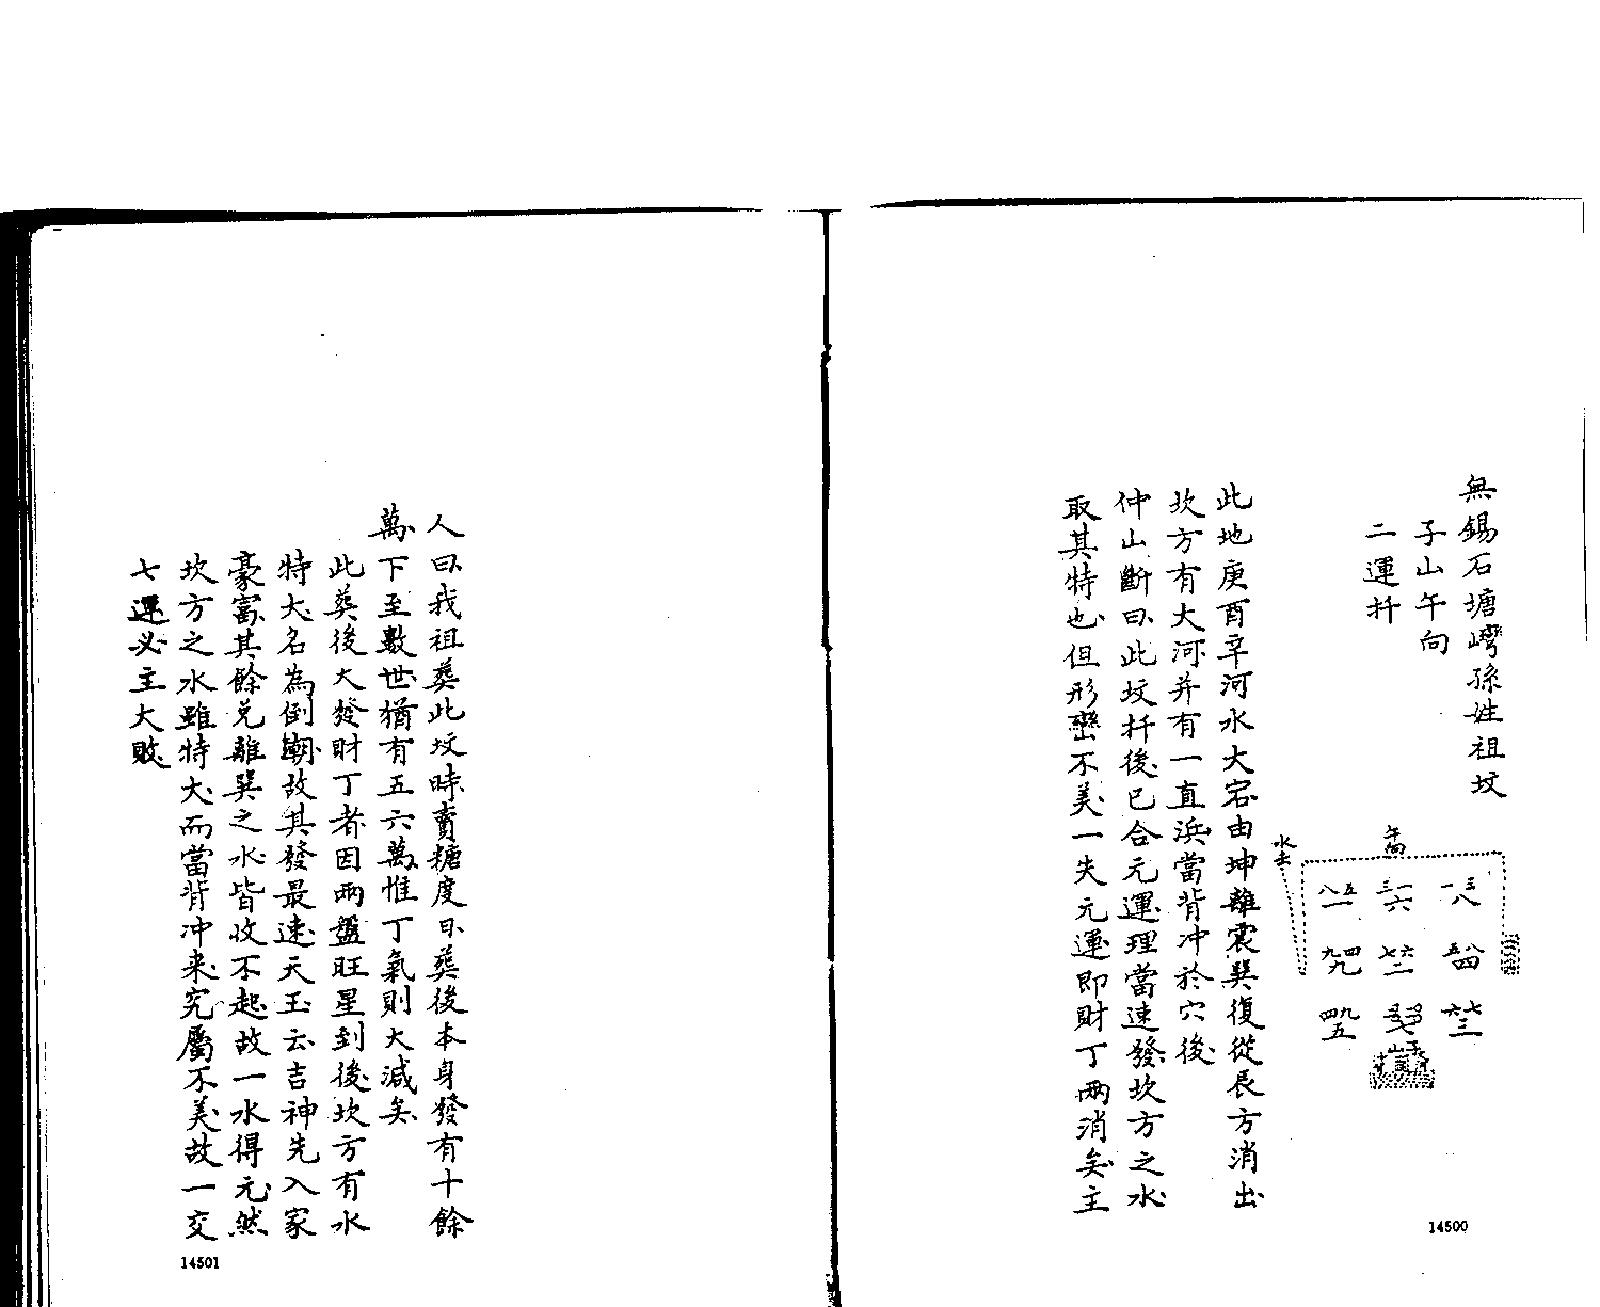 無錫石塘灣孫姓祖坟
子山午向
二運扦
午向
水去
三一 八
一三 六
五八 一
八五 四
六七 二
四九 九
七六 三
七
九四 五
此地庚酉辛河水大宕由坤離震巽復從艮方消出
坎方有大河并有一直浜當背冲於穴後
仲山斷曰此坟扦後已合元運理當速發坎方之水
取其特也但形巒不美一失元運即財丁兩消矣主
14500
人曰我祖葬此坟時賣糖度日葬後本身發有十餘
萬下至數世猶有五六萬惟丁氣則大減矣
此葬後大發財丁者因兩盤旺星到後坎方有水
特大名為倒潮故其發最速天玉云吉神先入家
豪富其餘兌離巽之水皆收不起故一水得元然
坎方之水雖特大而當背冲來究屬不美故一交
七運必主大敗
14501